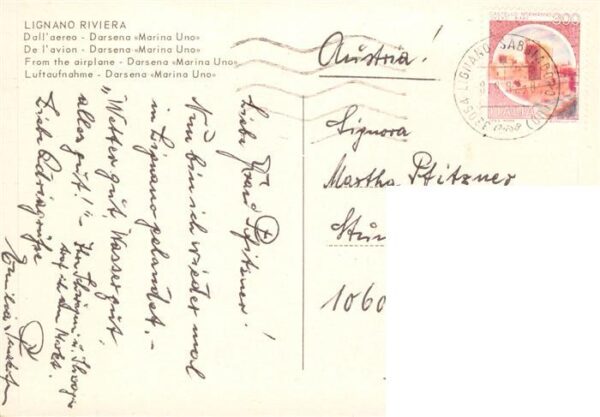 LIGNANO RIVIERA
Dall'aereo - Darsena «Marina Uno»
De l'avion - Darsena «Marina Uno»
From the airplane - Darsena «Marina Uno»
Luftaufnahme - Darsena «Marina Uno»
Liebe Frau Pfitzner!
Nun bin ich wieder mal
in Lignano gelandet. -
"Wetter gut, Wasser gut,
alles gut!" -
Liebe Adriagrüße
Emilia
Austria!
Signora
Martha Pfitzner
1060
LIGNANO SABBIADORO
ITALIA